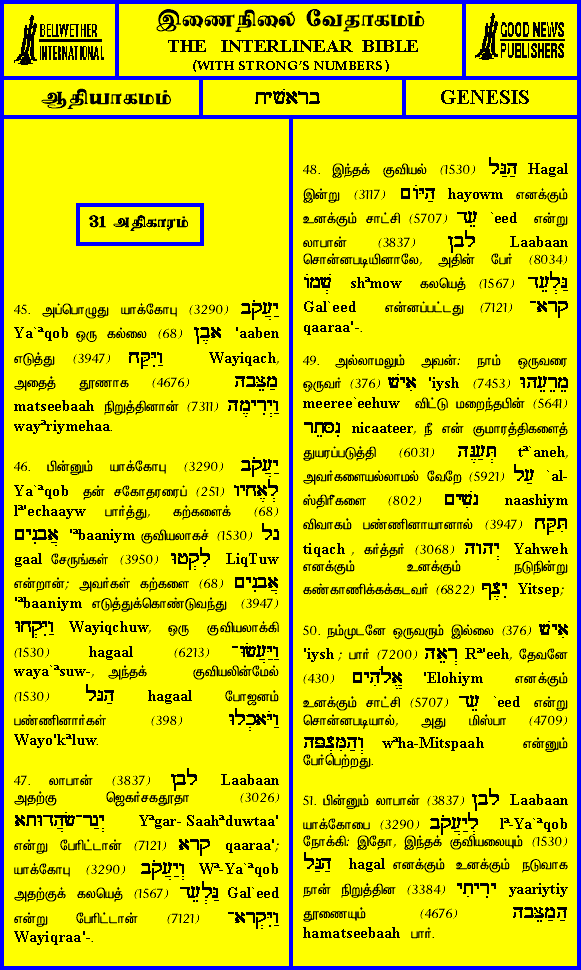 BELLWETHER
INTERNATIONAL
இணைநிலை வேதாகமம்
THE INTERLINEAR BIBLE
(WITH STRONG'S NUMBERS)
GOOD NEWS
PUBLISHERS
ஆதியாகமம்
בראשית
GENESIS
31 அதிகாரம்
45. அப்பொழுது யாக்கோபு (3290) יַעֲקֹב
Ya`ªqob ஒரு கல்லை (68) אֶבֶן 'aaben
எடுத்து (3947) וַיִּקַּח Wayiqach,
அதைத் தூணாக (4676) מַצֵּבָה
matseebaah நிறுத்தினான் (7311) וַיְרִימֶהָ
wayªriymehaa.
46. பின்னும் யாக்கோபு (3290) יַעֲקֹב
Ya`ªqob தன் சகோதரரைப் (251) לְאֶחָיו
lª'echaayw பார்த்து, கற்களைக் (68)
אֲבָנִים 'ªbaaniym குவியலாகச் (1530) גַל
gaal சேருங்கள் (3950) לִקְטוּ LiqTuw
என்றான்; அவர்கள் கற்களை (68) אֲבָנִים
'ªbaaniym எடுத்துக்கொண்டுவந்து (3947)
וַיִּקְחוּ Wayiqchuw, ஒரு குவியலாக்கி
(1530) hagaal (6213) וַיַּעֲשׂוּ־
waya`ªsuw-, அந்தக் குவியலின்மேல்
(1530) הַגָּל hagaal போஜனம்
பண்ணினார்கள் (398) וַיֹּאכְלוּ
Wayo'kªluw.
47. லாபான் (3837) לָבָן Laabaan
அதற்கு ஜெகர்சகதூதா (3026)
יְגַר־שָׂהֲדוּתָא Yªgar- Saahªduwtaa'
என்று பேரிட்டான் (7121) קרא qaaraa';
யாக்கோபு (3290) וְיַעֲקֹב Wª-Ya`ªqob
அதற்குக் கலயெத் (1567) גַּלְעֵד Gal`eed
என்று பேரிட்டான் (7121) וַיִּקְרָא־
Wayiqraa'-.
48. இந்தக் குவியல் (1530) הַגַּל Hagal
இன்று (3117) הַיּוֹם hayowm எனக்கும்
உனக்கும் சாட்சி (5707) עֵד `eed என்று
லாபான் (3837) לָבָן Laabaan
சொன்னபடியினாலே, அதின் பேர் (8034)
שְׁמוֹ shªmow கலயெத் (1567) גַּלְעֵד
Gal`eed என்னப்பட்டது (7121) קרא־
qaaraa'-.
49. அல்லாமலும் அவன்: நாம் ஒருவரை
ஒருவர் (376) אִישׁ 'iysh (7453) מֵרֵעֵהוּ
meeree`eehuw விட்டு மறைந்தபின் (5641)
נִסָּתֵר nicaateer, நீ என் குமாரத்திகளைத்
துயரப்படுத்தி (6031) תְּעַנֶּה tª`aneh,
அவர்களையல்லாமல் வேறே (5921) עַל `al-
ஸ்திரீகளை (802) נָשִׁים naashiym
விவாகம் பண்ணினாயானால் (3947) תִּקַּח
tiqach , கர்த்தர் (3068) יְהוָה Yahweh
எனக்கும் உனக்கும் நடுநின்று
கண்காணிக்கக்கடவர் (6822) יִצֶף Yitsep;
50. நம்முடனே ஒருவரும் இல்லை (376) אִישׁ
'iysh ; பார் (7200) רְאֵה Rª'eeh, தேவனே
(430) אֱלֹהִים 'Elohiym எனக்கும்
உனக்கும் சாட்சி (5707) עֵד `eed என்று
சொன்னபடியால், அது மிஸ்பா (4709)
וְהַמִּצְפָּה wªha-Mitspaah என்னும்
பேர்பெற்றது.
51. பின்னும் லாபான் (3837) לָבָן Laabaan
யாக்கோபை (3290) לְיַעֲקֹב lª-Ya`ªqob
நோக்கி: இதோ, இந்தக் குவியலையும் (1530)
הַגַּל hagal எனக்கும் உனக்கும் நடுவாக
நான் நிறுத்தின (3384) יָרִיתִי yaariytiy
தூணையும் (4676) הַמַּצֵּבָה
hamatseebaah பார்.